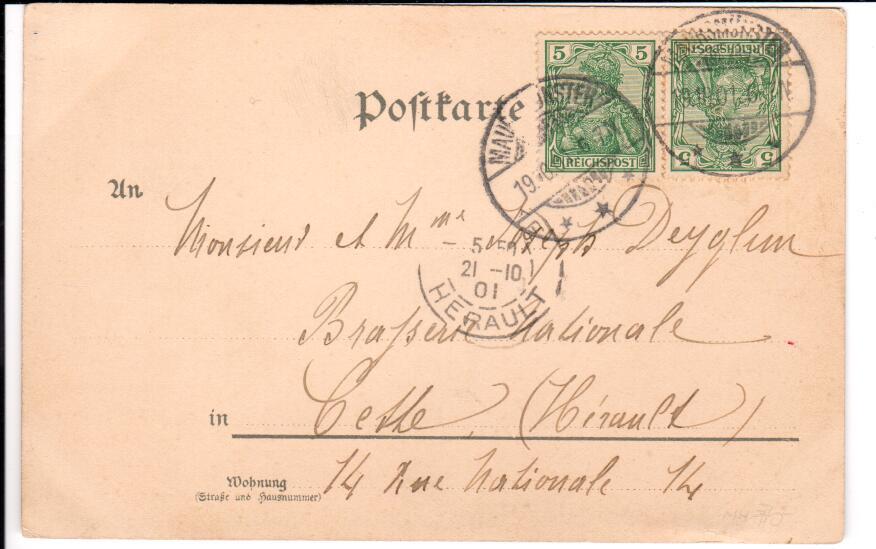 Postkarte
5 5
REICHSPOST
REICHSPOST
5 5
An
Monsieur et Mme Joseph Deyglun
Brasserie Nationale
in Cette, (Hérault)
Wohnung
(Straße und Hausnummer)
14 Rue Nationale 14
21 -10
01
HERAULT